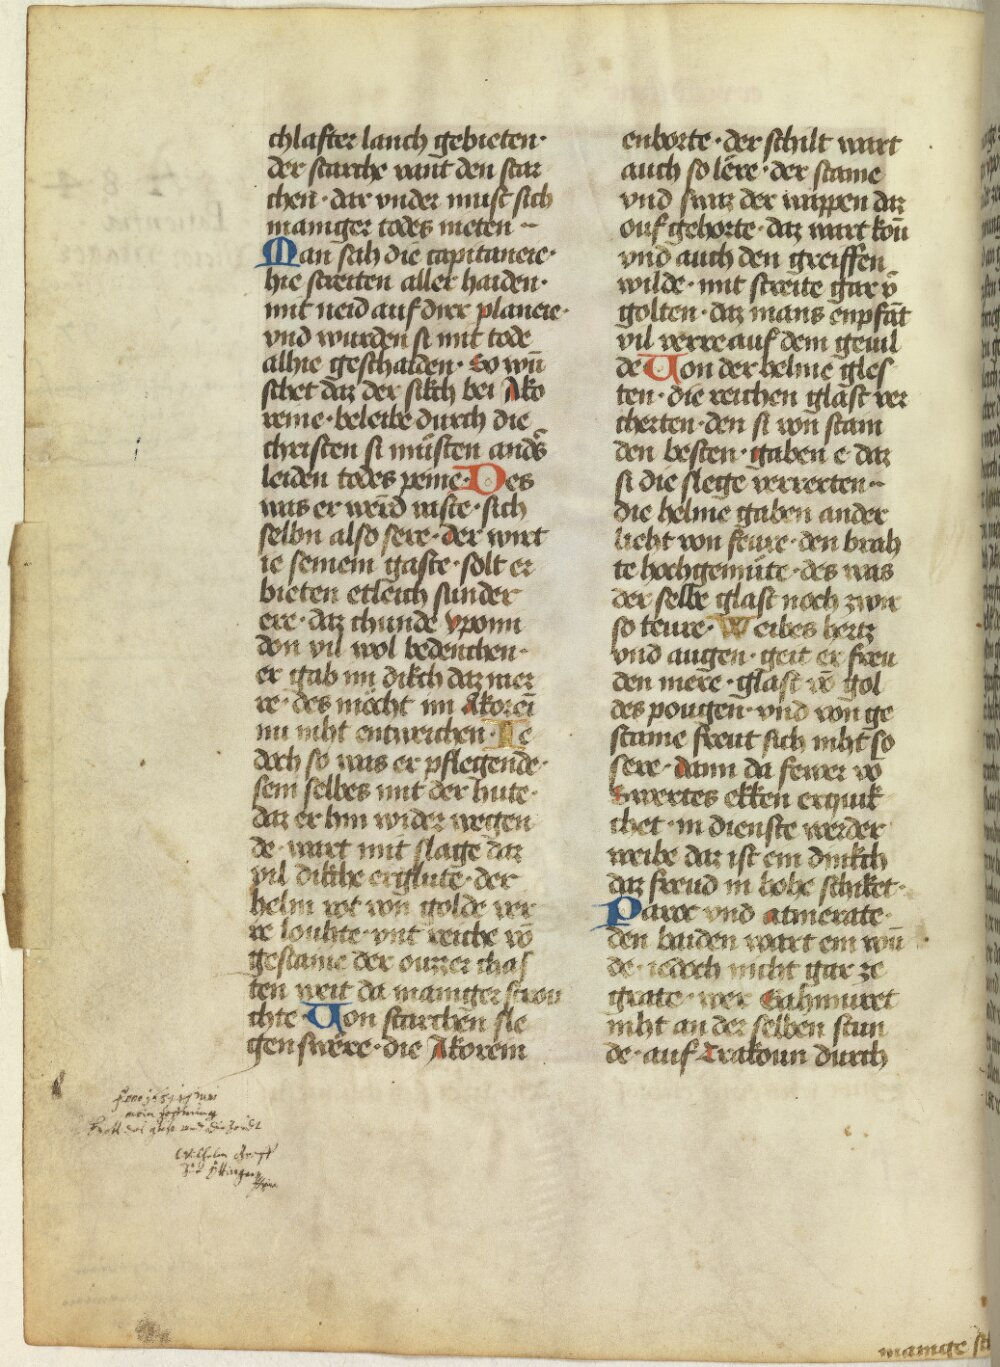 chlafter lanch gebieten·
der starche vant den star
chen· dar vnder must sich
maniger todes nieten ~
Man sah die capitaneie·
hie streiten aller haiden·
mit neid auf dirr planeie·
vnd wurden si mit tode
alhie geschaiden· So wun̄
schet daz der sikch bei Ako
reine· beleibe durch die
christen si mu̇sten anders
leiden todes peine· Des
was er werd̄ wiste· sich
selbn also sere· der wirt
ie seinem gaste· solt er
bieten etleich sunder
ere· daz chunde yponn
don vil wol bedenchen·
er gab im dikch daz mer
re· des möcht im Akorei
nu niht entweichen· Ie
doch so was er pflegende·
sein selbes mit der hute·
daz er hin wider wegen
de· wart mit slage daz
vil dikche erglute· der
helm rot von golde ver
re louhte· vnt reiche vō
gestaine der ouzzer chas
ten weit da maniger strou
chte· Von starchen sle
gen swere· die Akorein
enborte· der schilt wart
auch so lere· der staine
vnd swaz der wappen daz
ouf gehorte· daz wart kōn
vnd auch den greiffen
wilde· mit streite gar v̄
golten· daz mans enpfāt
vil verre auf dem geuil
de Von der helme gles
ten· die reichen glast ver
cherten· den si von stain
den besten· gaben e daz
si die slege verrerten ~
die helme gaben ander
lieht von feure· den brah
te hochgemüte· des was
der selbe glast noch zwir
so teure· Weibes hertz
vnd augen· geit er freu
den mere· glast vō gol
des pougen· vnd von ge
staine freut sich niht so
sere· dann da fewer vō
swertes ekken erquik
chet· in dienste werder
weibe daz ist ein dinkch
daz freud in hohe schiket·
Parre vnd atmerate·
den baiden wart ein wun̄
de· iedoch nicht gar ze
grate· wer Gahmuret
niht an der selben stun
de· auf Trakoun durch
mein hoffnung
Wilhelm
manige